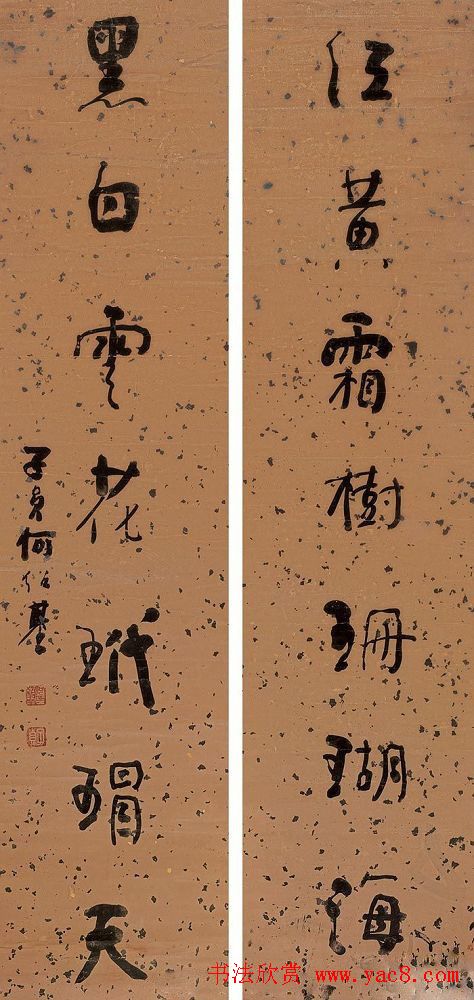 红黄霜樹珊瑚海
黑白雲花玳瑁天
子貞何紹基
书法欣赏 www.yac8.com